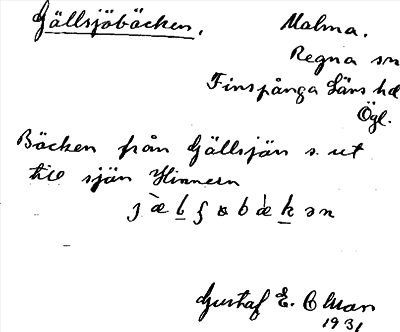 Gällsjöbäcken.
Malma.
Regna sn
Finspånga Läns hd
Ögl.
Bäcken från Gällsjön s. ut
till sjön Hinnern
Gustaf E. Ohlson
1931